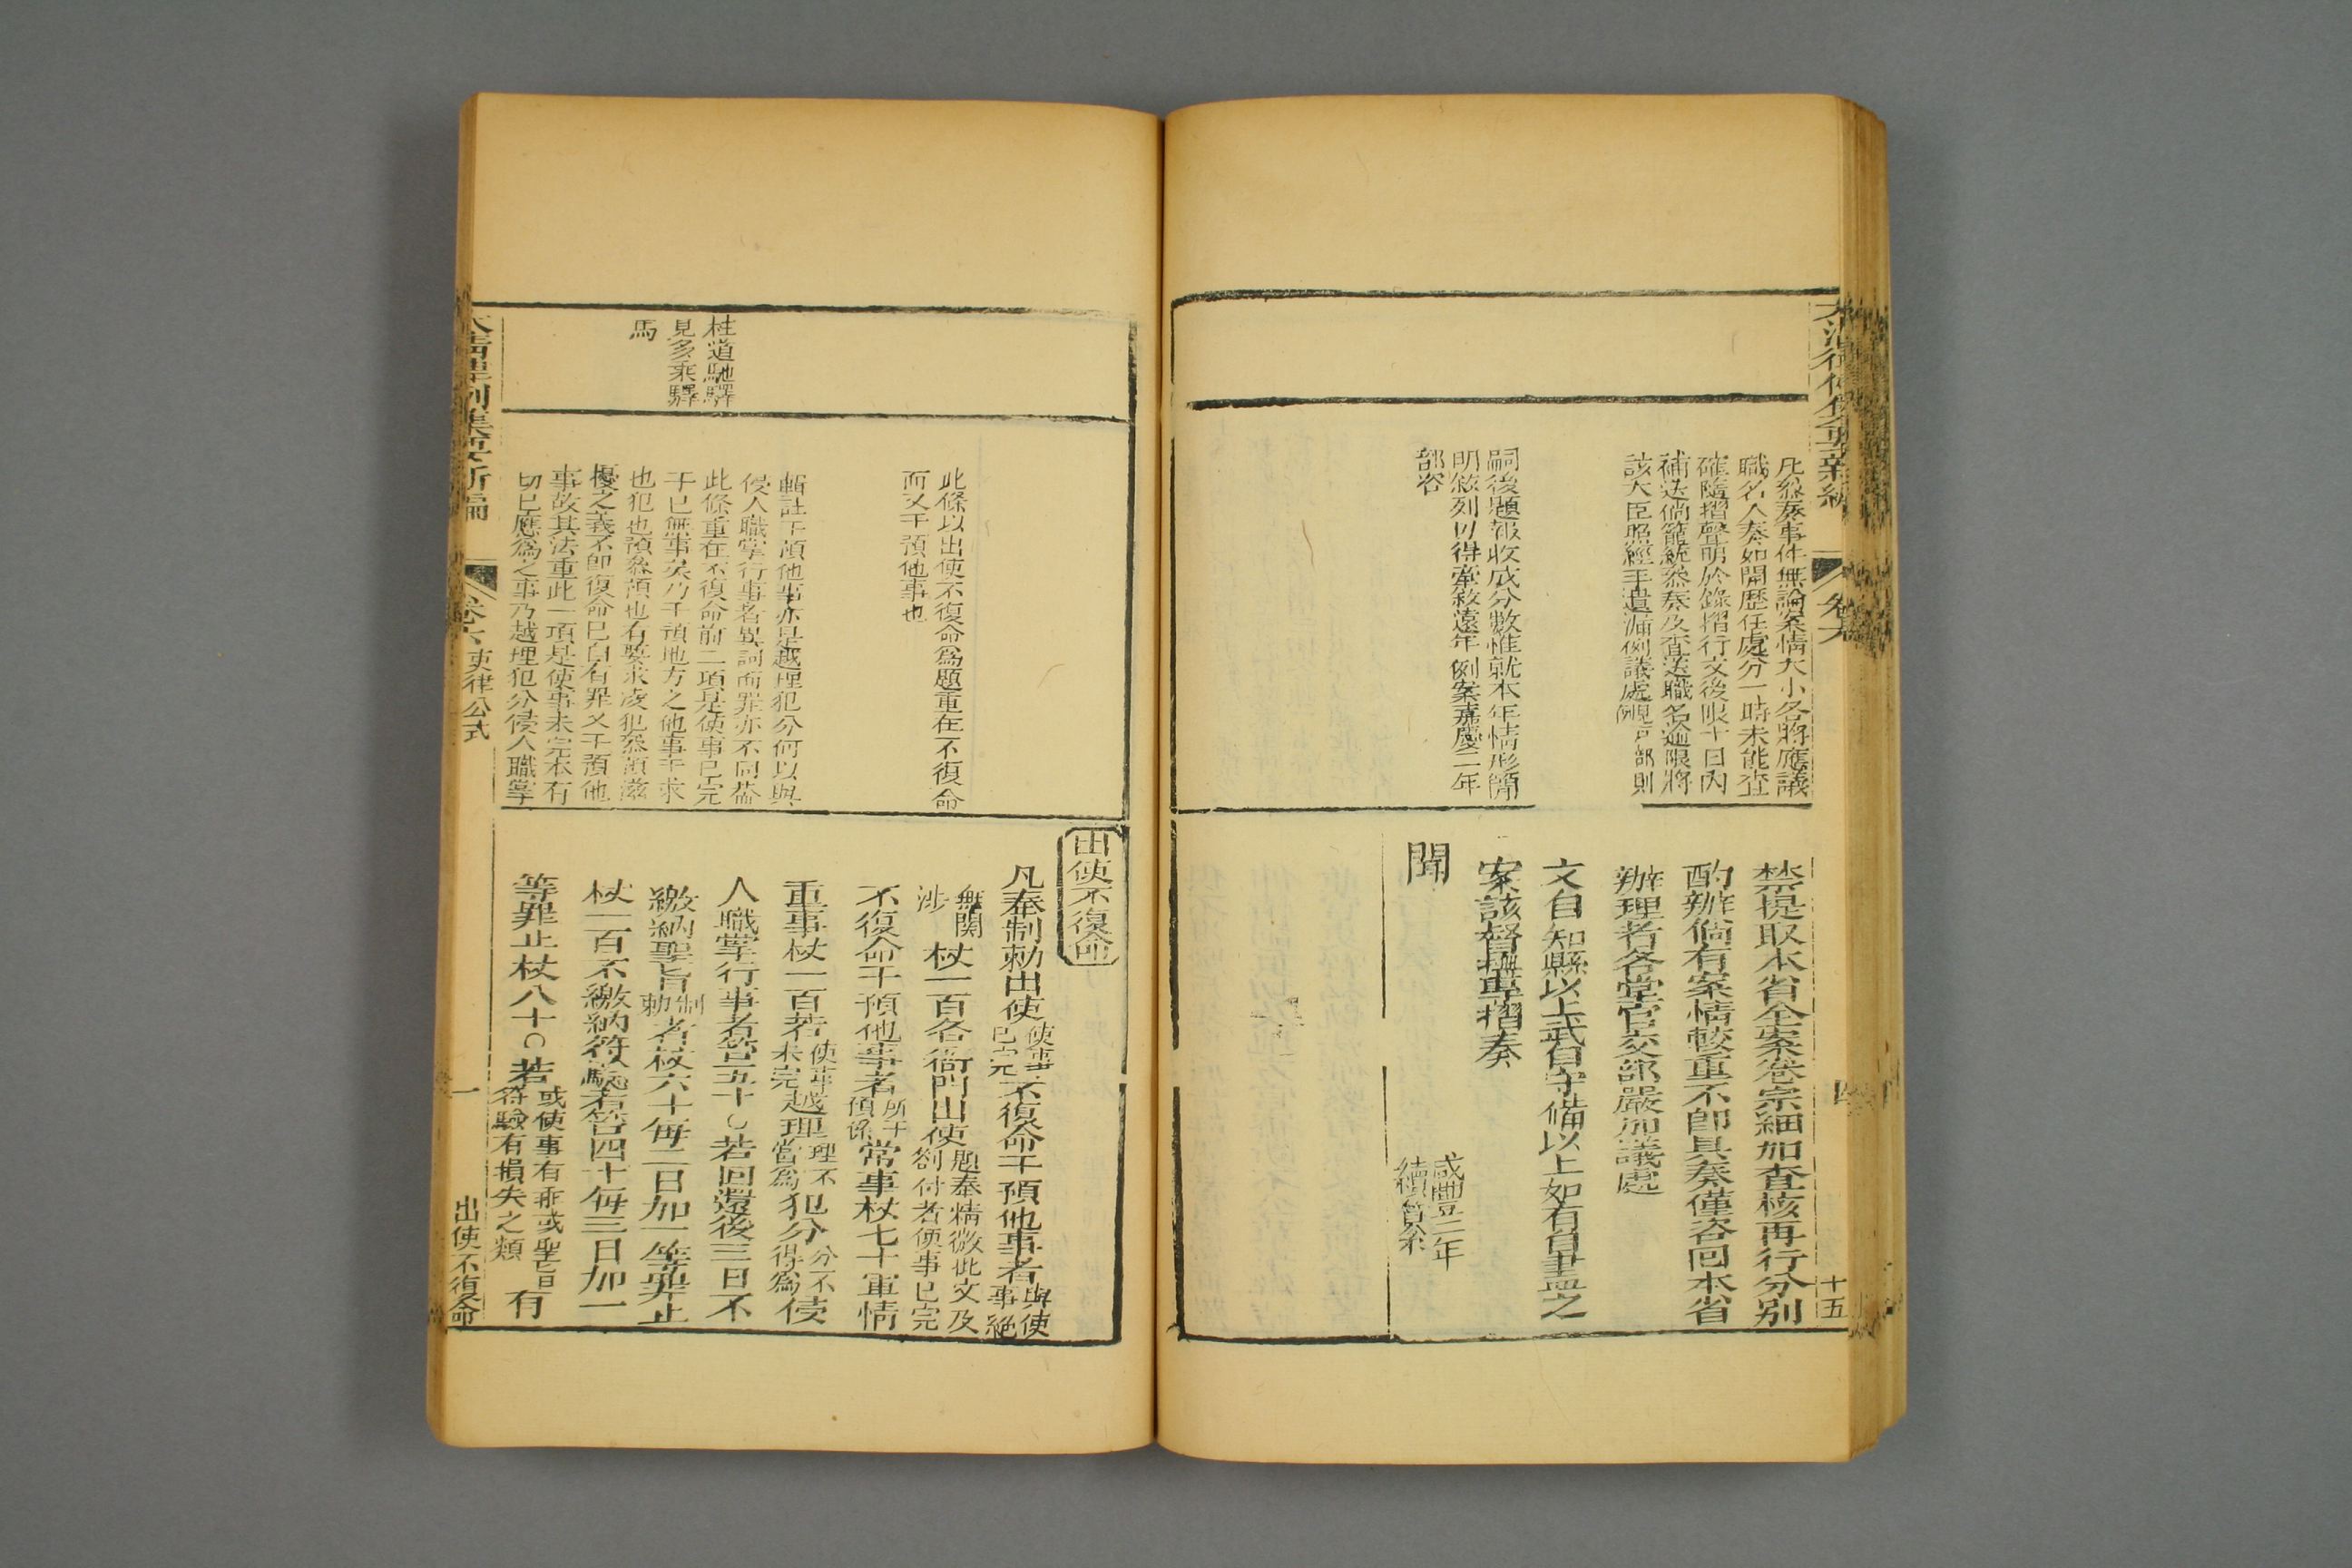 凡叅奏事件無論案情大小各將應議
職名入奏如開歷任處分一時未能查
確隨摺聲明於錄摺行文後限十日內
補送倘籠統叅奏及查送職名逾限將
該大臣照經手遺漏例議處見戶部則例
嗣後題報收成分數惟就本年情形聲
明敘列以得牽敘遠年例案嘉慶二年
部咨
禁提取本省全案卷宗細加查核再行分别
酌辦倘有案情較重不卽具奏僅咨回本省
辦理者各堂官交部嚴加議處
文自知縣以上武自守備以上如有自盡之
案該督撫專摺奏
聞
咸豐二年
續纂
卷六
十五
枉道馳驛
見多乘驛
馬
此條以出使不復命爲題重在不復命
而又干預他事也
輯註干預他事亦是越理犯分何以與
侵人職掌行事者異詞而罪亦不同葢
此條重在不復命前二項是使事已完
于已無事矣乃干預地方之他事干求
也犯也預叅預也有要求凌犯叅預滋
擾之義不卽復命已自有罪又干預他
事故其法重此一項是使事未完本有
切已應爲之事乃越理犯分侵人職掌
出使不復命
凡奉制勅出使使事已完不復命干預他事者與使事絕
無關涉杖一百各衙門出使題奉精微批文及劄付者使事已完
不復命干預他事者所干預係常事杖七十軍情
重事杖一百若使事未完越理理不當爲犯分分不得爲侵
人職掌行事者笞五十○若回還後三日不
繳納聖旨制勅者杖六十每二日加一等罪止
杖一百不繳納符驗者笞四十每三日加一
等罪止杖八十○若或使事有乖或聖旨符驗有損失之類有
大清律例集要新編
卷六
吏律公式
一
出使不復命